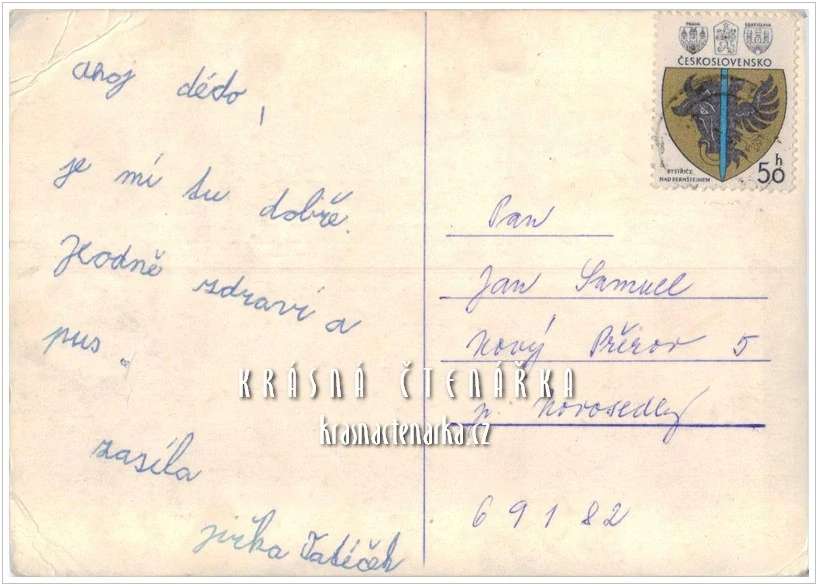 ahoj dědo,
je mi tu dobře.
Hodně zdraví a
pus.
zasíla
jirka
PRAHA
BRATISLAVA
ČESKOSLOVENSKO
BYSTŘICE
NAD PERNŠTEJNEM
50 h
Pan
Jan Samuel
Nový Přerov 5
p. Novosedly
69182
KRÁSNÁ ČTENÁŘKA
krasnactenarka.cz